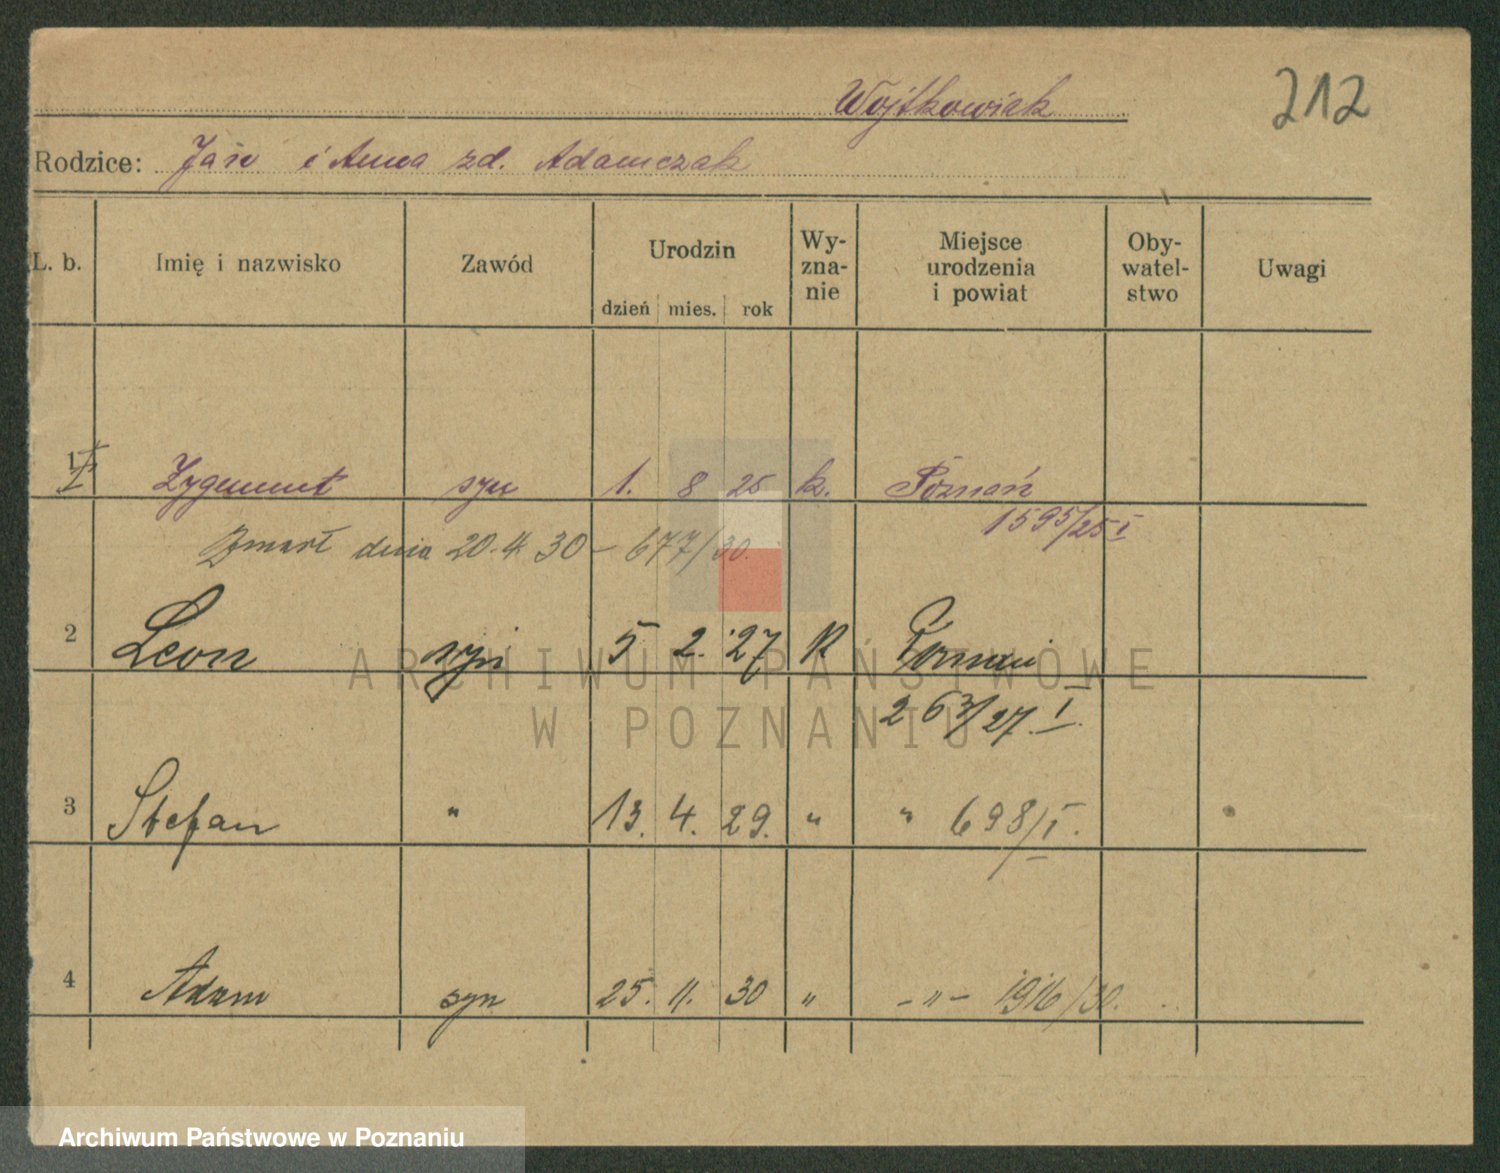 Wojtkowiak 212
Rodzice: Jan i Anna zd. Adamczak
L. b. Imię i nazwisko Zawód Urodzin dzień mies. rok Wy-zna-nie Miejsce urodzenia i powiat Oby-watel-stwo Uwagi
1 Zygmunt syn 1. 8 25 k. Poznań
1595/25 I
Zmarł dnia 20. 4. 30 – 677/30.
2 Leon syn 5 2. 27 K Poznań
263/27. I.
3 Stefan " 13. 4. 29. " " 698/I.
4 Adam syn 25. 11. 30 " – " – 1916/30.
ARCHIWUM PAŃSTWOWE
W POZNANIU
Archiwum Państwowe w Poznaniu